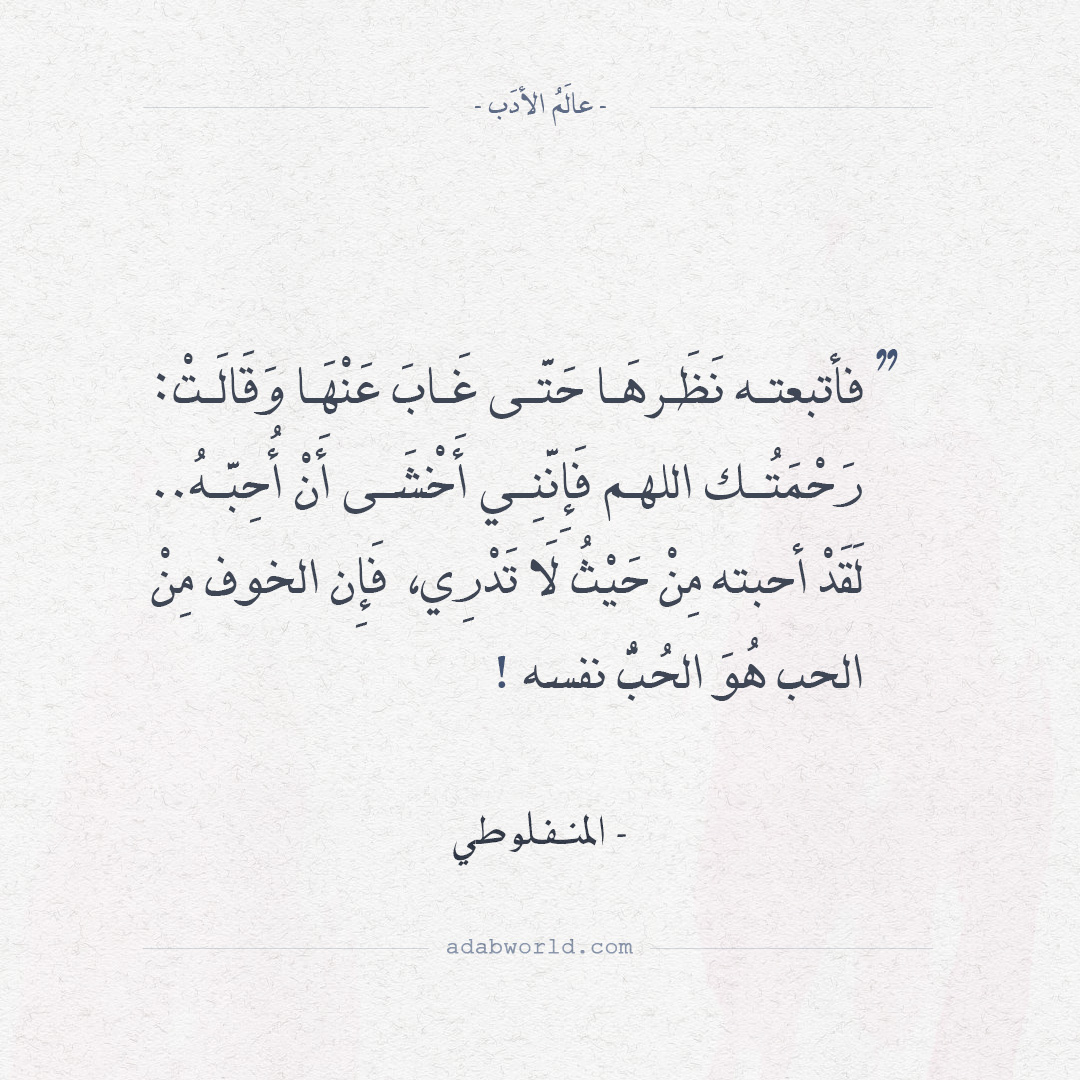 - عالَمُ الأدَب -
” فأتبعته نَظَرهَا حَتّى غَابَ عَنْهَا وَقَالَتْ:
رَحْمَتُك اللهم فَإِنّنِي أَخْشَى أَنْ أُحِبّهُ..
لَقَدْ أحبته مِنْ حَيْثُ لَا تَدْرِي، فَإِن الخوف مِنْ
الحب هُوَ الحُبٌ نفسه !
- المنفلوطي
adabworld.com